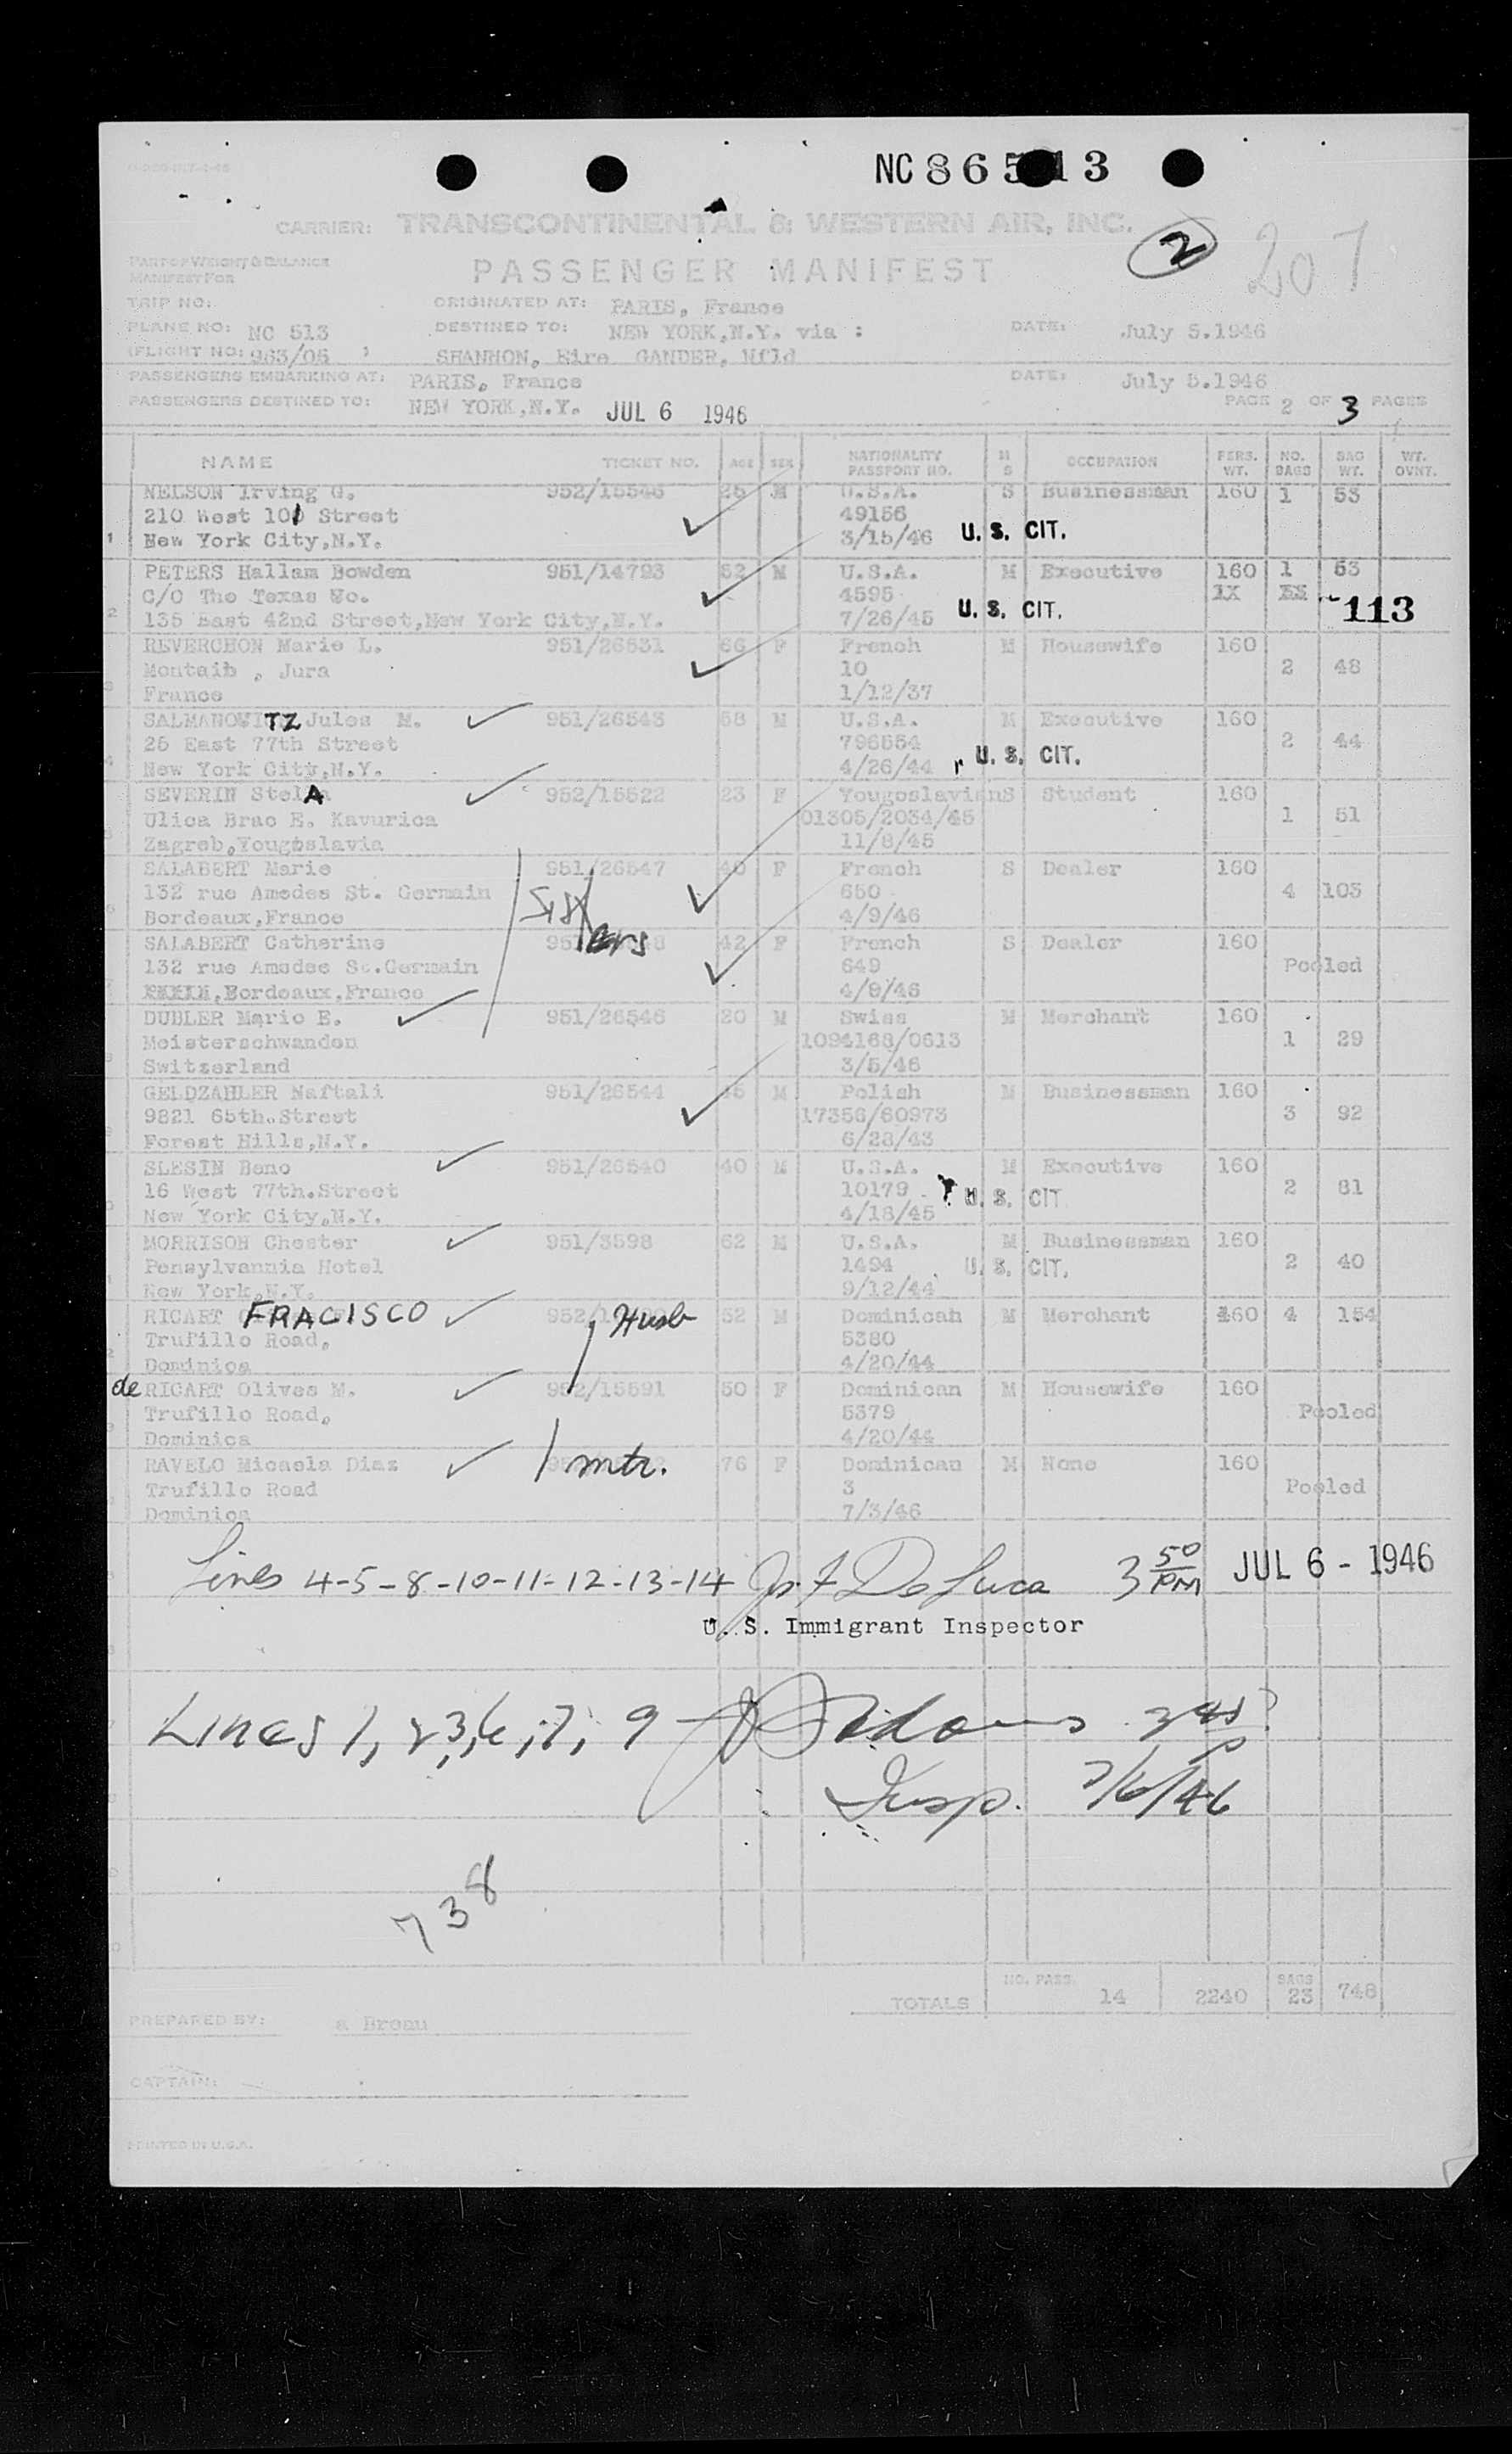 NC 86513
CARRIER: TRANSCONTINENTAL & WESTERN AIR, INC.
2 207
PART OF WEIGHT & BALANCE
MANIFEST FOR
PASSENGER MANIFEST
TRIP NO: ORIGINATED AT: PARIS, France
PLANE NO: NC 513 DESTINED TO: NEW YORK,N.Y. via : DATE: July 5.1946
(FLIGHT NO: 963/05 ) SHANNON, Eire GANDER, Nfld
PASSENGERS EMBARKING AT: PARIS, France DATE: July 5.1946
PASSENGERS DESTINED TO: NEW YORK,N.Y. JUL 6 1946 PAGE 2 OF 3 PAGES
NAME TICKET NO. AGE SEX NATIONALITY PASSPORT NO. M S OCCUPATION PERS. WT. NO. BAGS BAG WT. WT. OVNT.
NELSON Irving G. 952/15546 25 M U.S.A. S Businessman 160 1 53
210 West 101 Street 49156
1 New York City,N.Y. 3/15/46 U. S. CIT.
PETERS Hallam Bowden 951/14793 52 M U.S.A. M Executive 160 1 53
C/O The Texas Co. 4595
2 135 East 42nd Street,New York City,N.Y. 7/26/45 U. S. CIT. 113
REVERCHON Marie L. 951/26531 66 F French M Housewife 160
Montaib , Jura 10 2 48
3 France 1/12/37
SALMANOWITZ Jules M. 951/26543 58 M U.S.A. M Executive 160
25 East 77th Street 796554 2 44
4 New York City,N.Y. 4/26/44 U. S. CIT.
SEVERIN Stella 952/15522 23 F Yougoslavian S Student 160
Ulica Brac E. Kavurica 01305/2034/45 1 51
Zagreb,Yougoslavia 11/8/45
SALABERT Marie 951/26547 40 F French S Dealer 160
132 rue Amedee St. Germain Sisters 650 4 105
6 Bordeaux,France 4/9/46
SALABERT Catherine 42 F French S Dealer 160
132 rue Amedee St.Germain 649 Pooled
7 Bordeaux,France 4/9/46
DUBLER Mario E. 951/26546 20 M Swiss M Merchant 160
Meisterschwanden 1094168/0613 1 29
Switzerland 3/5/46
GELDZAHLER Naftali 951/26544 45 M Polish M Businessman 160
9821 65th.Street 17356/60973 3 92
Forest Hills,N.Y. 6/28/43
SLESIN Beno 951/26540 40 M U.S.A. M Executive 160
16 West 77th.Street 10179 2 81
New York City,N.Y. 4/18/45 U. S. CIT
MORRISON Chester 951/3598 62 M U.S.A. M Businessman 160
Pensylvannia Hotel 1494 U. S. CIT. 2 40
New York,N.Y. 9/12/44
RICART FRACISCO Husb 52 M Dominican M Merchant 160 4 154
Trufillo Road, 5380
Dominica 4/20/44
de RICART Olives M. 952/15591 50 F Dominican M Housewife 160
Trufillo Road, 5379 Pooled
Dominica 4/20/44
RAVELO Micaela Diaz mtr. 76 F Dominican M None 160
Trufillo Road 3 Pooled
Dominica 7/3/46
Lines 4-5-8-10-11-12-13-14 Jos. F De Luca 3 50 PM JUL 6 - 1946
U. S. Immigrant Inspector
Lines 1, 2 3, 6, 7, 9 Adams
Insp. 7/6/46
738
TOTALS NO. PASS. 14 2240 BAGS 23 748
PREPARED BY: a Breau
CAPTAIN:
PRINTED IN U.S.A.